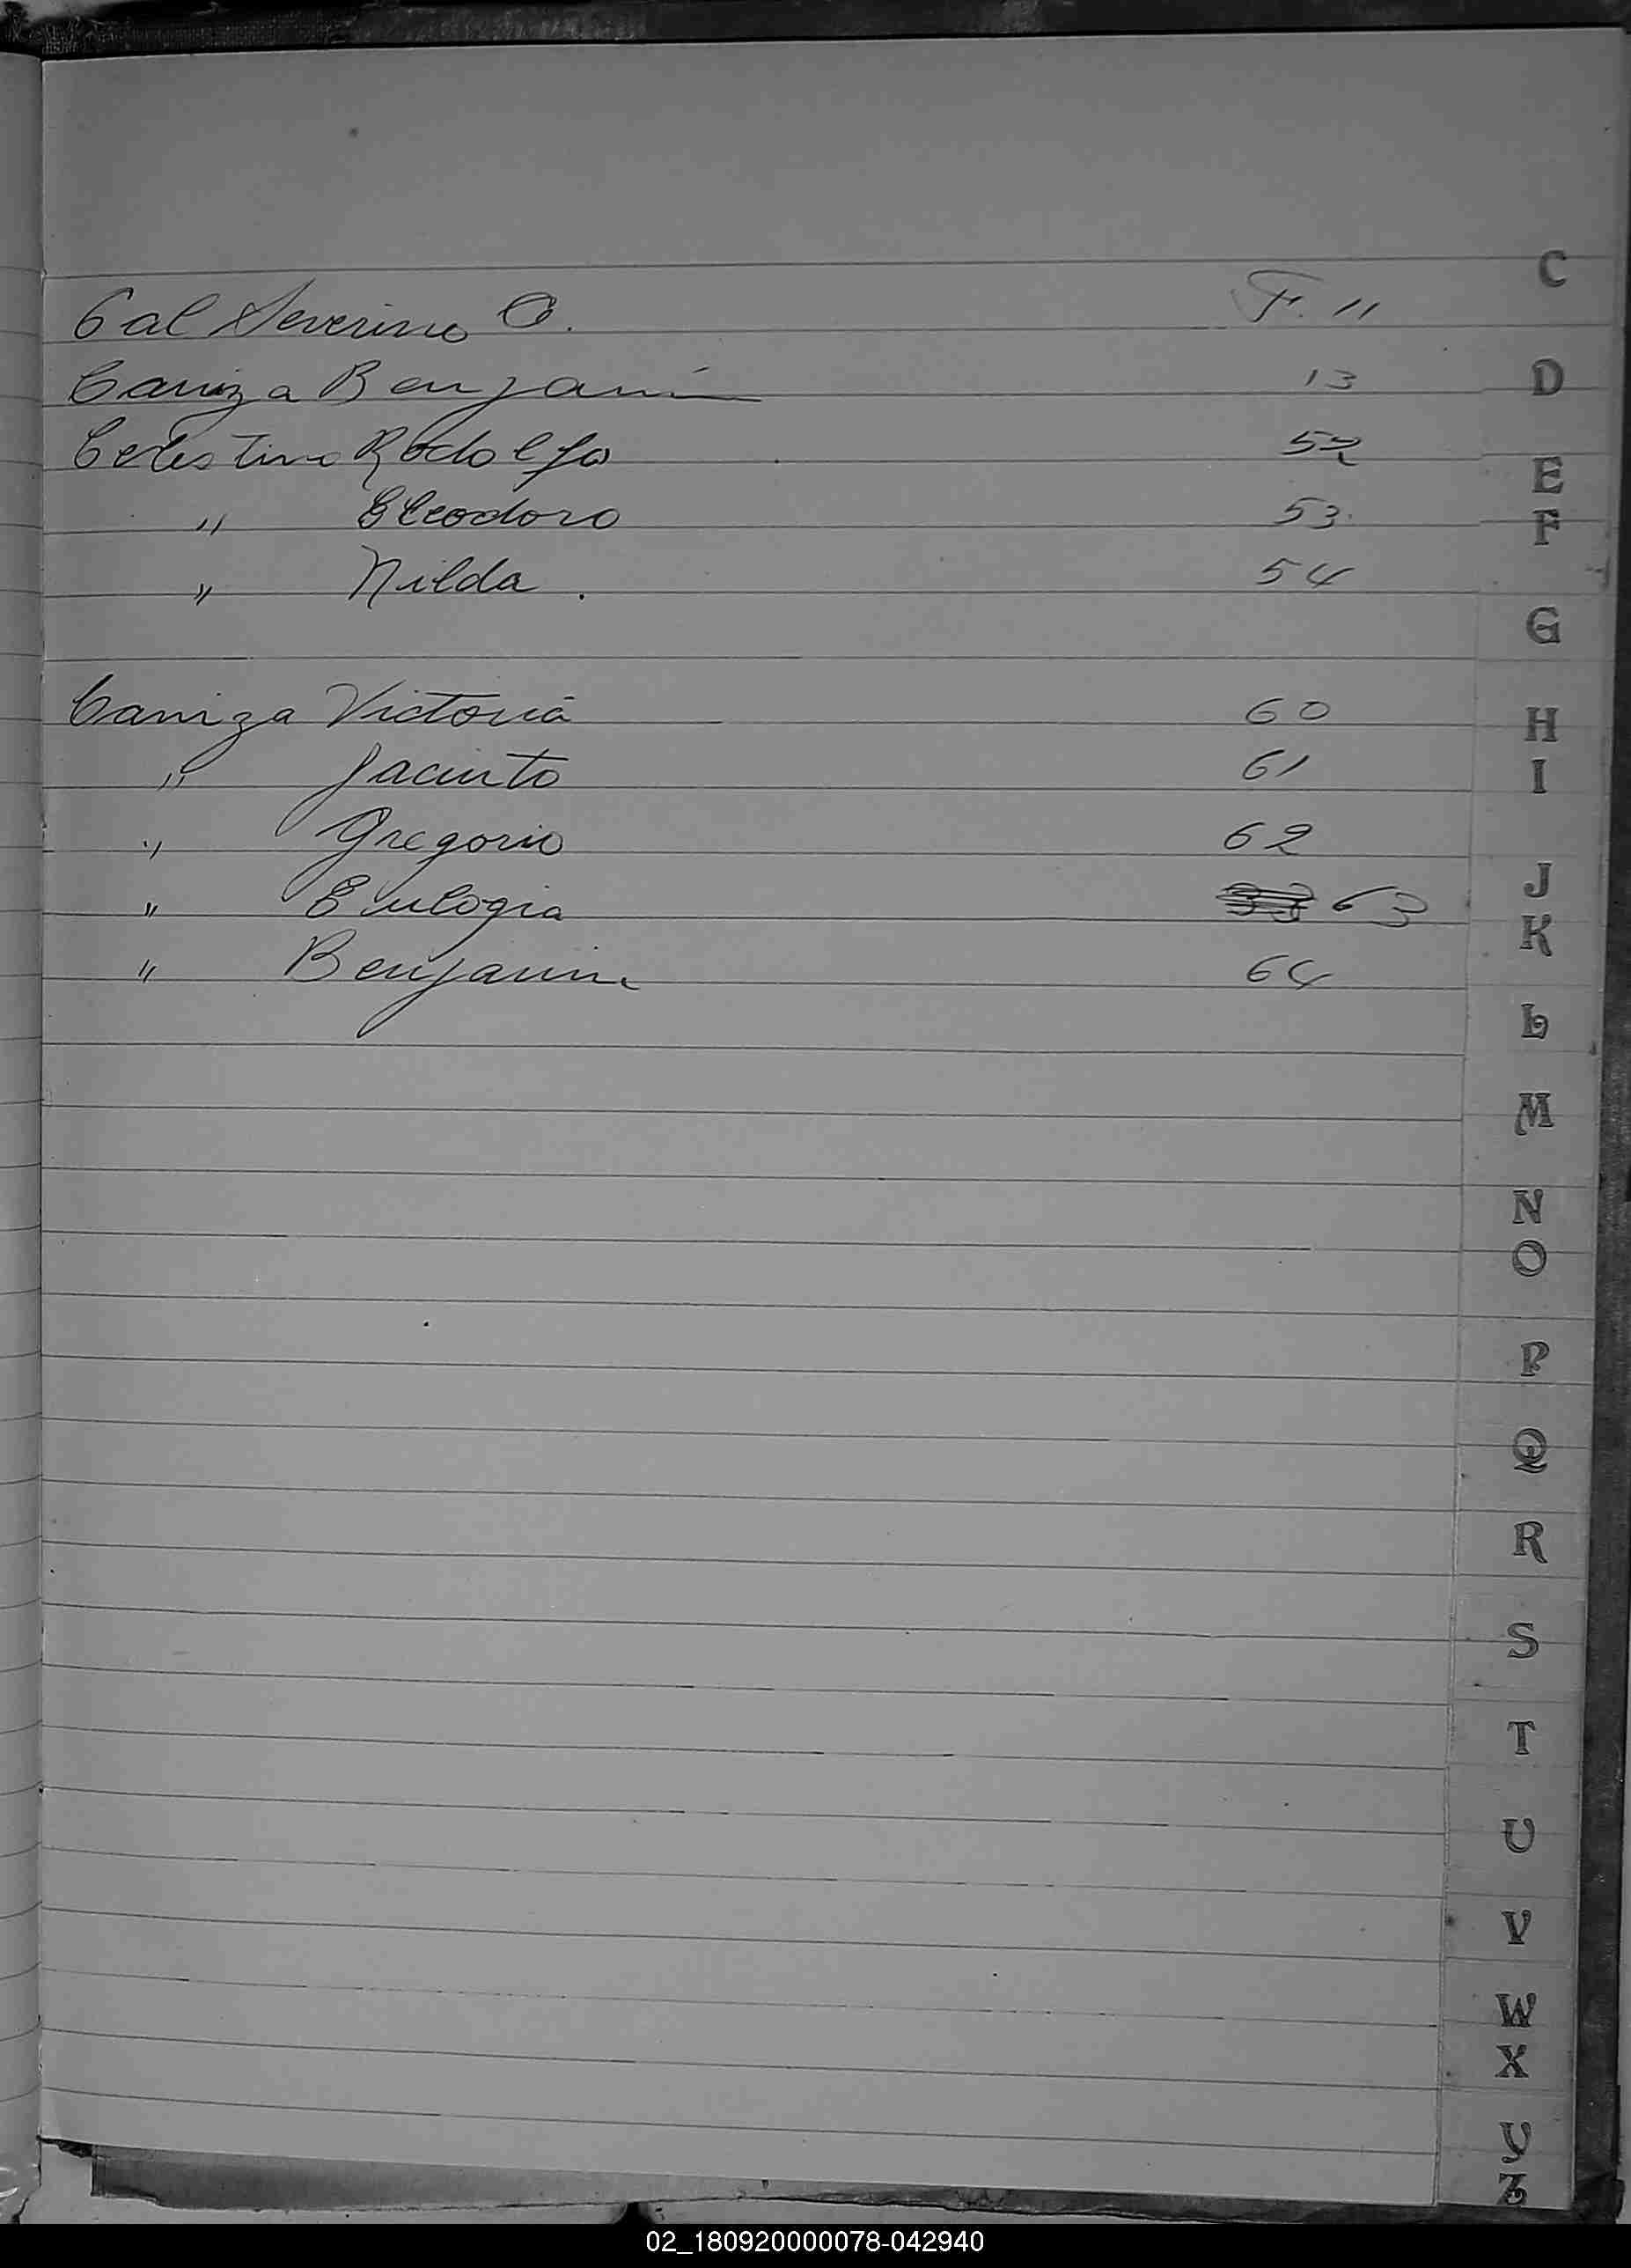 Cal Severino O. F. 11
Caniza Benjamín 13
Celestino Rodolfo 52
" Eleodoro 53
" Nilda . 54
Caniza Victoria 60
" Jacinto 61
" Gregorio 62
" Eulogia 63
" Benjamin 64
C
D
E
F
G
H
I
J
K
L
M
N
O
P
Q
R
S
T
U
V
W
X
Y
Z
02_180920000078-042940